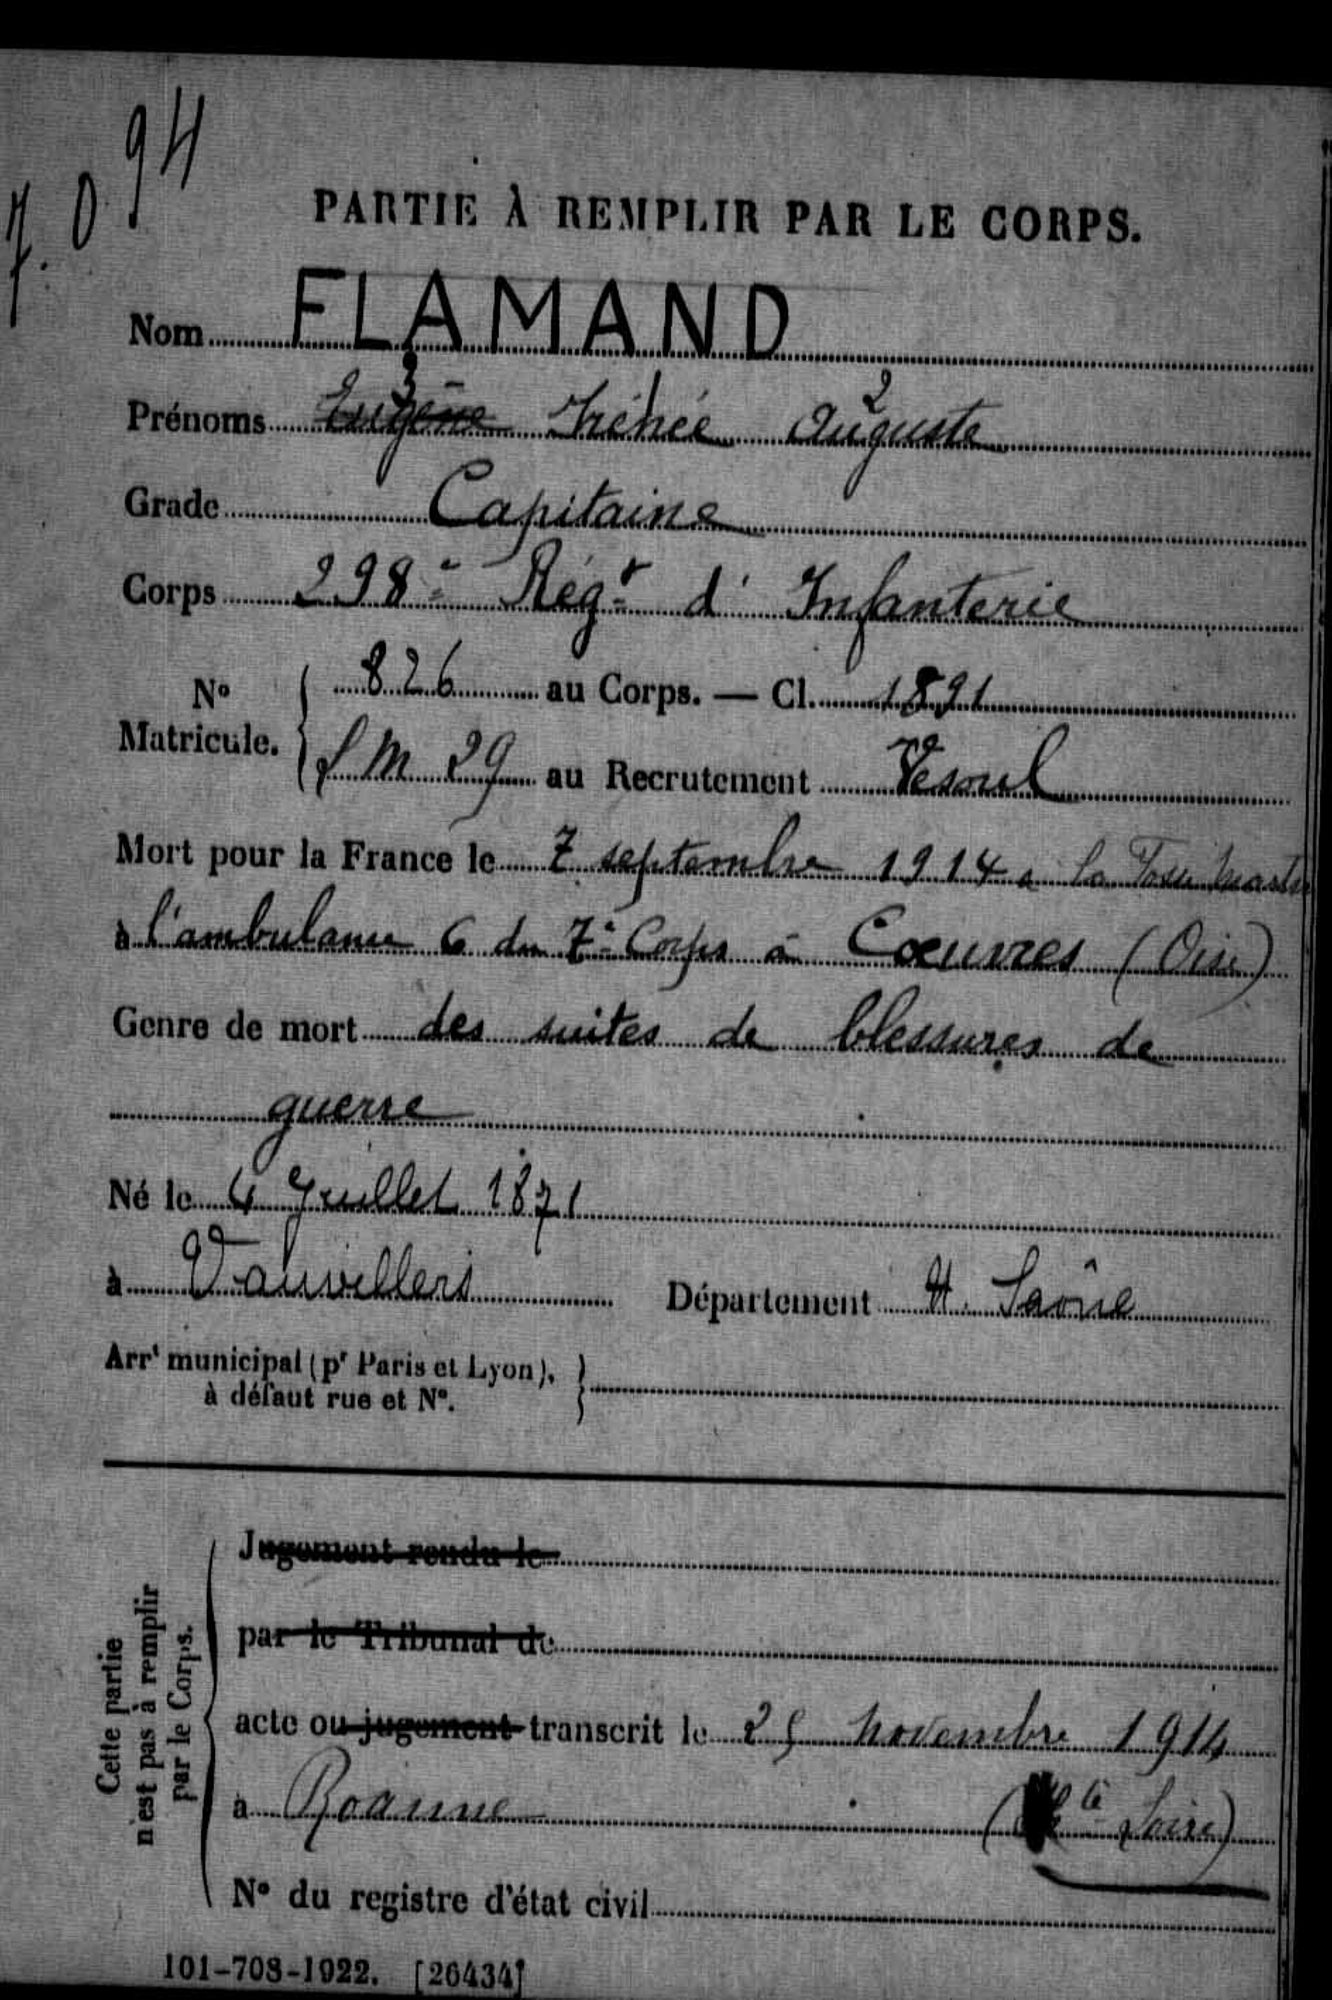 7.094
PARTIE À REMPLIR PAR LE CORPS.
Nom FLAMAND
3 2
Prénoms Eugène Irénée Auguste
Grade Capitaine
Corps 298e Régt d'Infanterie
No Matricule. 826 au Corps. — Cl. 1891
LM 29 au Recrutement Vesoul
Mort pour la France le 7 septembre 1914 a la
à l'ambulance 6 du 7e Corps à Coeuvres (Oise)
Genre de mort des suites de blessures de
guerre
Né le 4 Juillet 1871
à Vauvillers Département H. Saône
Arrt municipal (pr Paris et Lyon),
à défaut rue et No.
Cette partie
n'est pas à remplir
par le Corps.
Jugement rendu le
par le Tribunal de
acte ou jugement transcrit le 25 novembre 1914
à Roanne (Hte Loire)
No du registre d'état civil
101-708-1922. [26434]